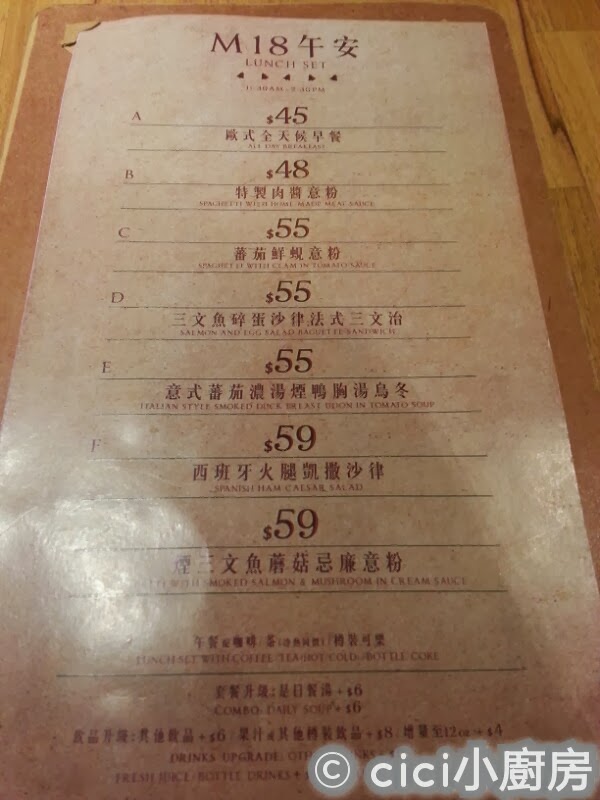 M18午安
LUNCH SET
11:30AM - 2:30PM
A
$45
歐式全天候早餐
ALL DAY BREAKFAST
B
$48
特製肉醬意粉
SPAGHETTI WITH HOME MADE MEAT SAUCE
C
$55
蕃茄鮮蜆意粉
SPAGHETTI WITH CLAM IN TOMATO SAUCE
D
$55
三文魚碎蛋沙律法式三文治
SALMON AND EGG SALAD BAGUETTE SANDWICH
E
$55
意式蕃茄濃湯煙鴨胸湯烏冬
ITALIAN STYLE SMOKED DUCK BREAST UDON IN TOMATO SOUP
F
$59
西班牙火腿凱撒沙律
SPANISH HAM CAESAR SALAD
$59
煙三文魚蘑菇忌廉意粉
WITH SMOKED SALMON & MUSHROOM IN CREAM SAUCE
午餐 咖啡/茶(冷熱同價)/樽裝可樂
LUNCH SET WITH COFFEE/TEA(HOT/COLD)/BOTTLE COKE
套餐升級:是日餐湯+$6
COMBO: DAILY SOUP+$6
飲品升級:其他飲品+$6/果汁或其他樽裝飲品+$8/增量至12oz+$4
DRINKS UPGRADE: OTHER
FRESH JUICE/BOTTLE DRINKS+
© cici小廚房